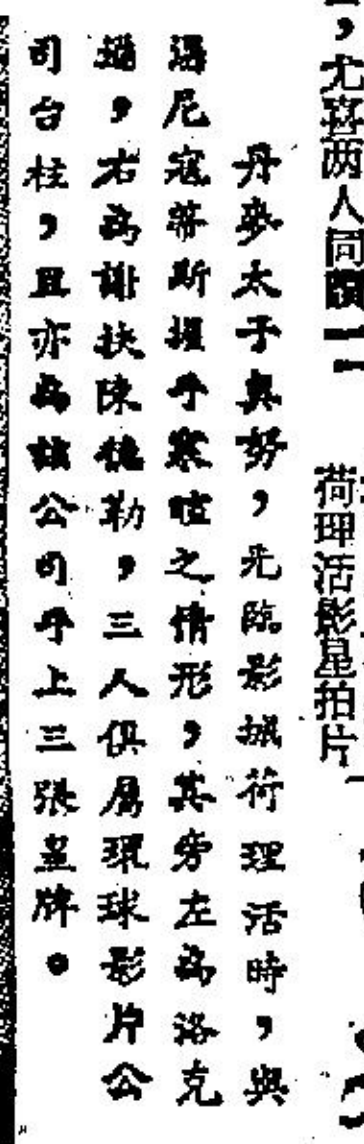 ，尤喜两人同讀
荷理活影星拍片
丹麥太子奧努，光臨影城荷理活時，與
湯尼寇蒂斯握手寒暄之情形，其旁左為洛克
遜，右為謝扶陳德勒，三人俱屬環球影片公
司台柱，且亦為該公司手上三張皇牌。